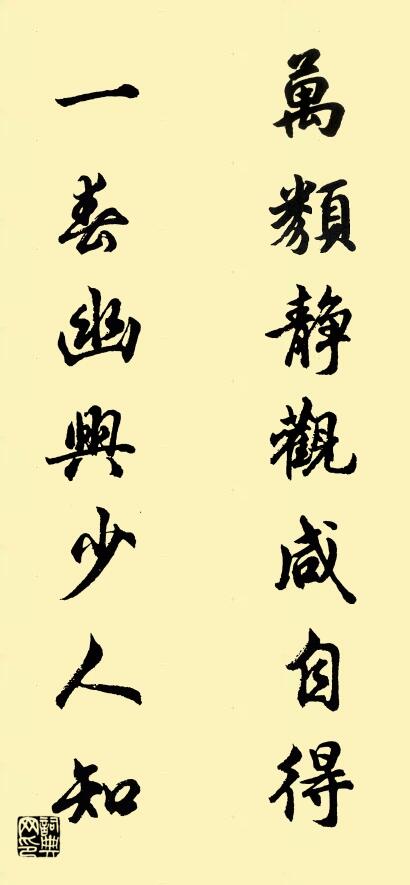 萬類靜觀咸自得
一春幽興少人知
詞典網印